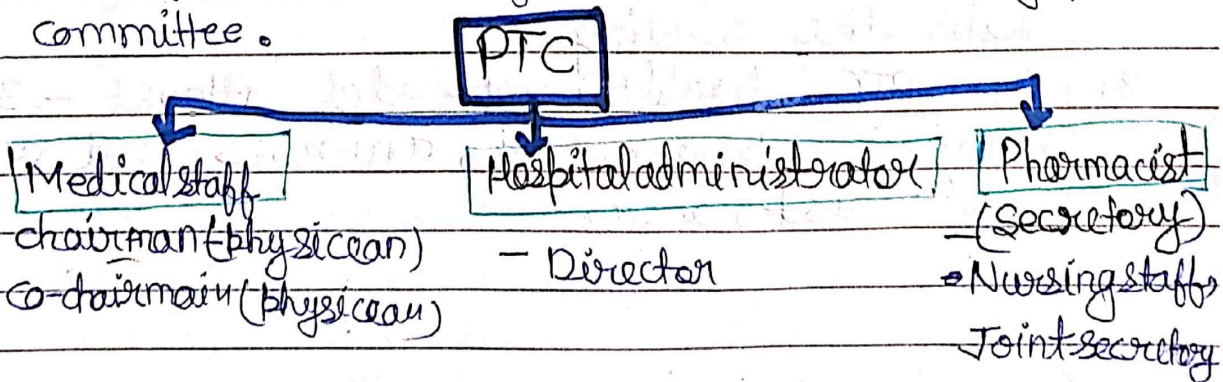 committee.
PTC
Medical staff
chairman (physicean)
co-chairmain (physicean)
Hospital administrator
- Director
Pharmacist
- (secretory)
- Nursing staff,
Joint secretory